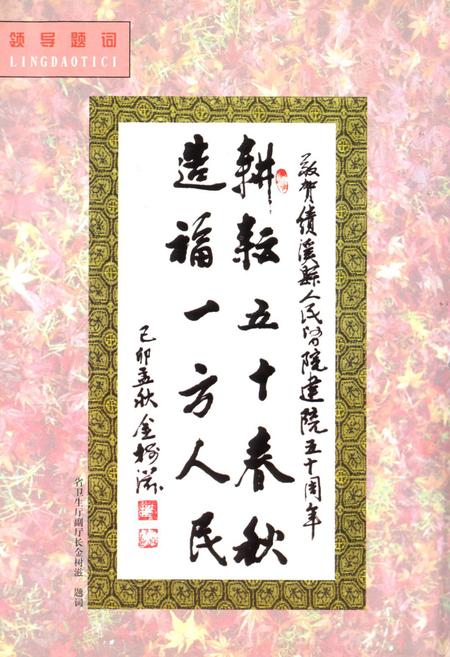 领导题词
LINGDAOTICI
敬贺绩溪縣人民醫院建院五十周年
耕耘五十春秋
造福一方人民
己卯孟秋 金树滋
省卫生厅副厅长金树滋 题词